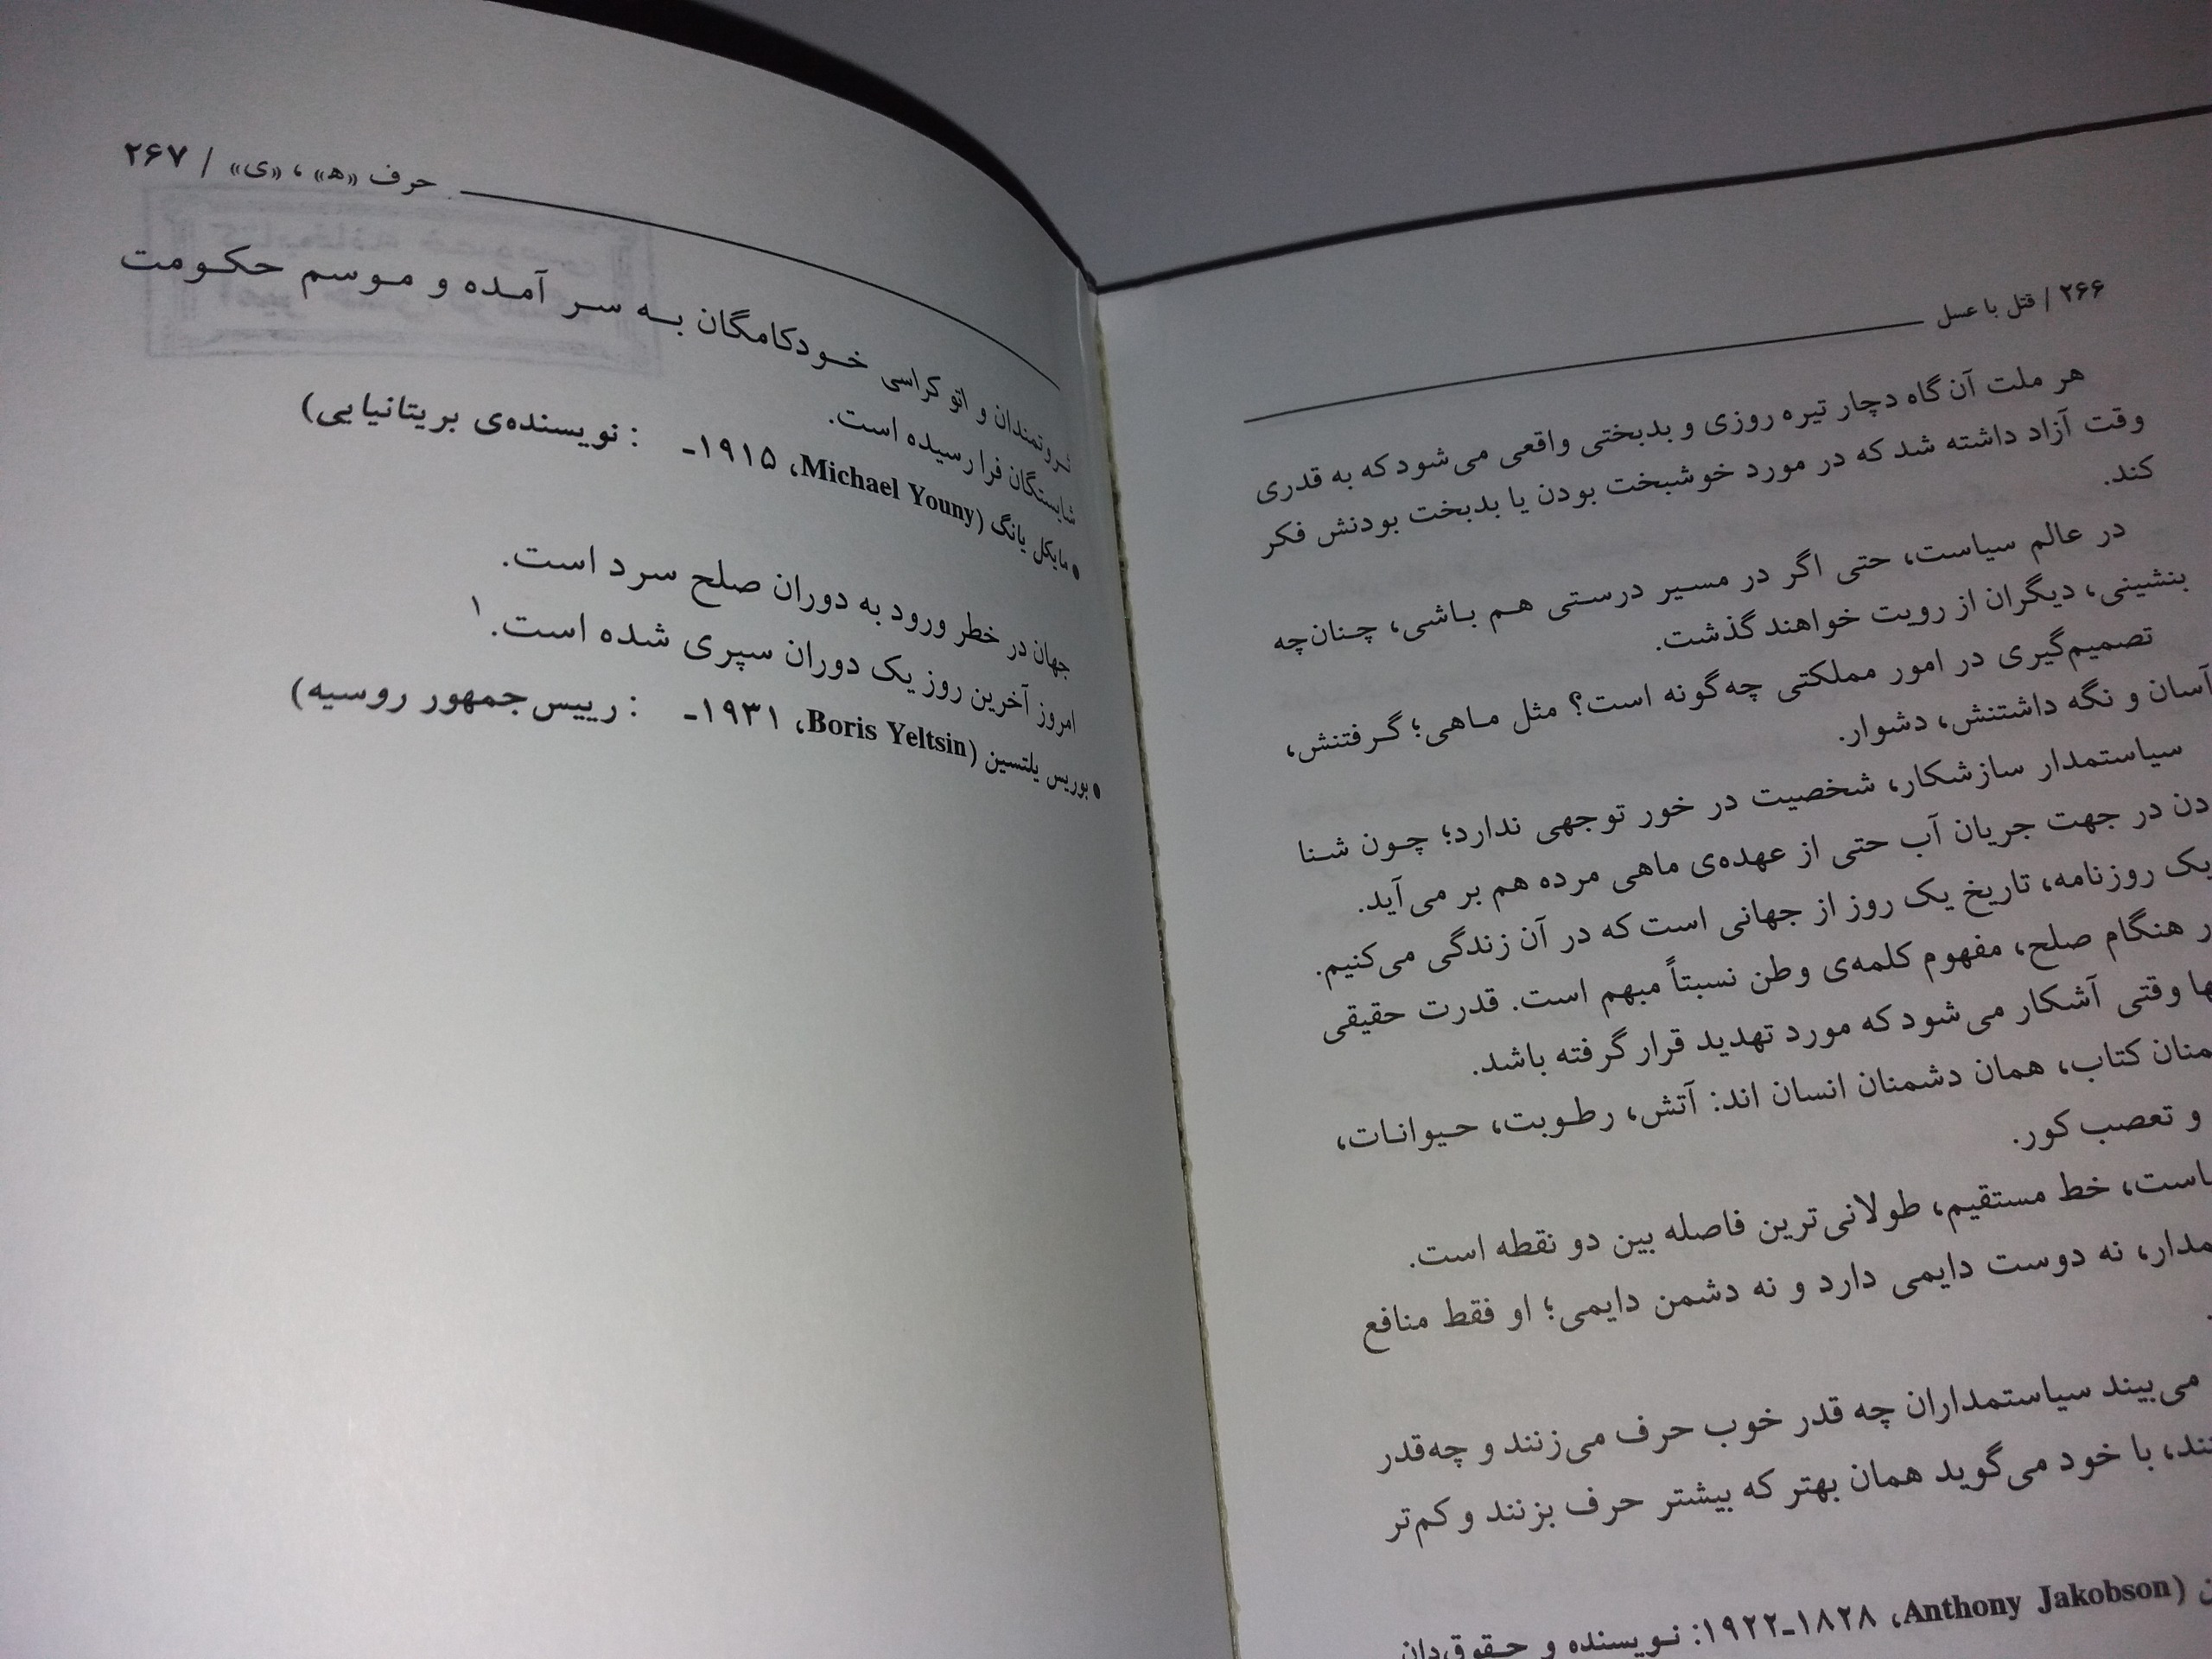 ۲۶۶ / قتل با عسل
هر ملت آن گاه دچار تیره روزی و بدبختی واقعی می‌شود که به قدری
وقت آزاد داشته شد که در مورد خوشبخت بودن یا بدبخت بودنش فکر
کند.
در عالم سیاست، حتی اگر در مسیر درستی هم باشی، چنان‌چه
بنشینی، دیگران از رویت خواهند گذشت.
تصمیم‌گیری در امور مملکتی چه‌گونه است؟ مثل ماهی؛ گرفتنش،
آسان و نگه داشتنش، دشوار.
سیاستمدار سازشکار، شخصیت در خور توجهی ندارد؛ چون شنا
دن در جهت جریان آب حتی از عهده‌ی ماهی مرده هم بر می‌آید.
یک روزنامه، تاریخ یک روز از جهانی است که در آن زندگی می‌کنیم.
ر هنگام صلح، مفهوم کلمه‌ی وطن نسبتاً مبهم است. قدرت حقیقی
ها وقتی آشکار می‌شود که مورد تهدید قرار گرفته باشد.
منان کتاب، همان دشمنان انسان اند: آتش، رطوبت، حیوانات،
و تعصب کور.
است، خط مستقیم، طولانی‌ترین فاصله بین دو نقطه است.
مدار، نه دوست دایمی دارد و نه دشمن دایمی؛ او فقط منافع
می‌بیند سیاستمداران چه قدر خوب حرف می‌زنند و چه‌قدر
نند، با خود می‌گوید همان بهتر که بیشتر حرف بزنند و کم‌تر
ن (Anthony Jakobson، ۱۸۲۸ـ۱۹۲۲: نویسنده و حقوق‌دان
حرف «ه»، «ی» / ۲۶۷
ثروتمندان و اتو کراسی خودکامگان به سر آمده و موسم حکومت
شایستگان فرا رسیده است.
• مایکل یانگ (Michael Youny، ۱۹۱۵ـ : نویسنده‌ی بریتانیایی)
جهان در خطر ورود به دوران صلح سرد است.
امروز آخرین روز یک دوران سپری شده است.۱
• بوریس یلتسین (Boris Yeltsin، ۱۹۳۱ـ : رییس‌جمهور روسیه)